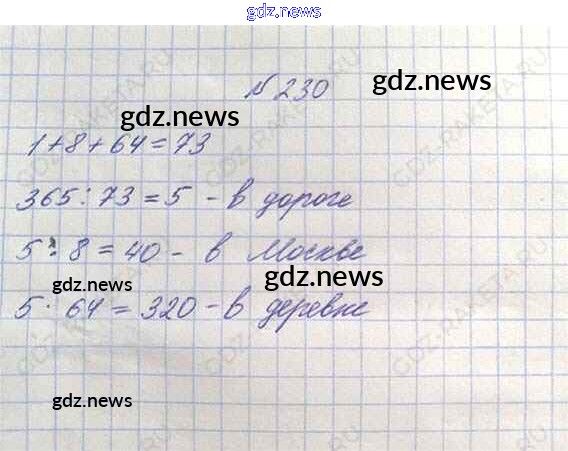 gdz.news
№ 230
gdz.news
gdz.news
1 + 8 + 64 = 73
365 : 73 = 5 - в дороге
5 : 8 = 40 - в Москве
gdz.news
gdz.news
5 · 64 = 320 - в деревне
gdz.news
GDZ-RAKETA.RU